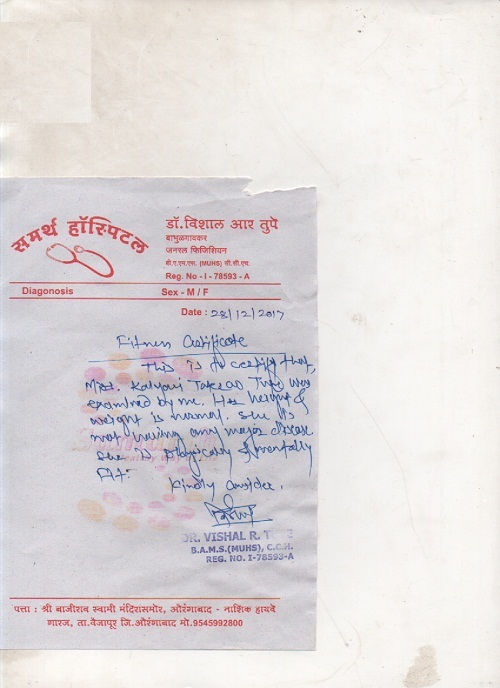 समर्थ हॉस्पिटल
डॉ.विशाल आर तुपे
बाभुळगावकर
जनरल फिजिशियन
बी.ए.एम.एस. (MUHS) सी.सी.एच.
Reg. No - I - 78593 - A
Diagonosis Sex - M / F
Date : 28/12/2017
Fitness Certificate
This is to certify that,
Miss. Kalyani Tupe was
examined by me. Her height &
weight is normal. She is
not having any major disease
she is physically & mentally
Fit.
Kindly consider.
DR. VISHAL R. TUPE
B.A.M.S.(MUHS), C.C.H.
REG. NO. I-78593-A
पत्ता : श्री बाजीराव स्वामी मंदिरासमोर, औरंगाबाद - नाशिक हायवे
गारज, ता.वैजापूर जि.औरंगाबाद मो.9545992800